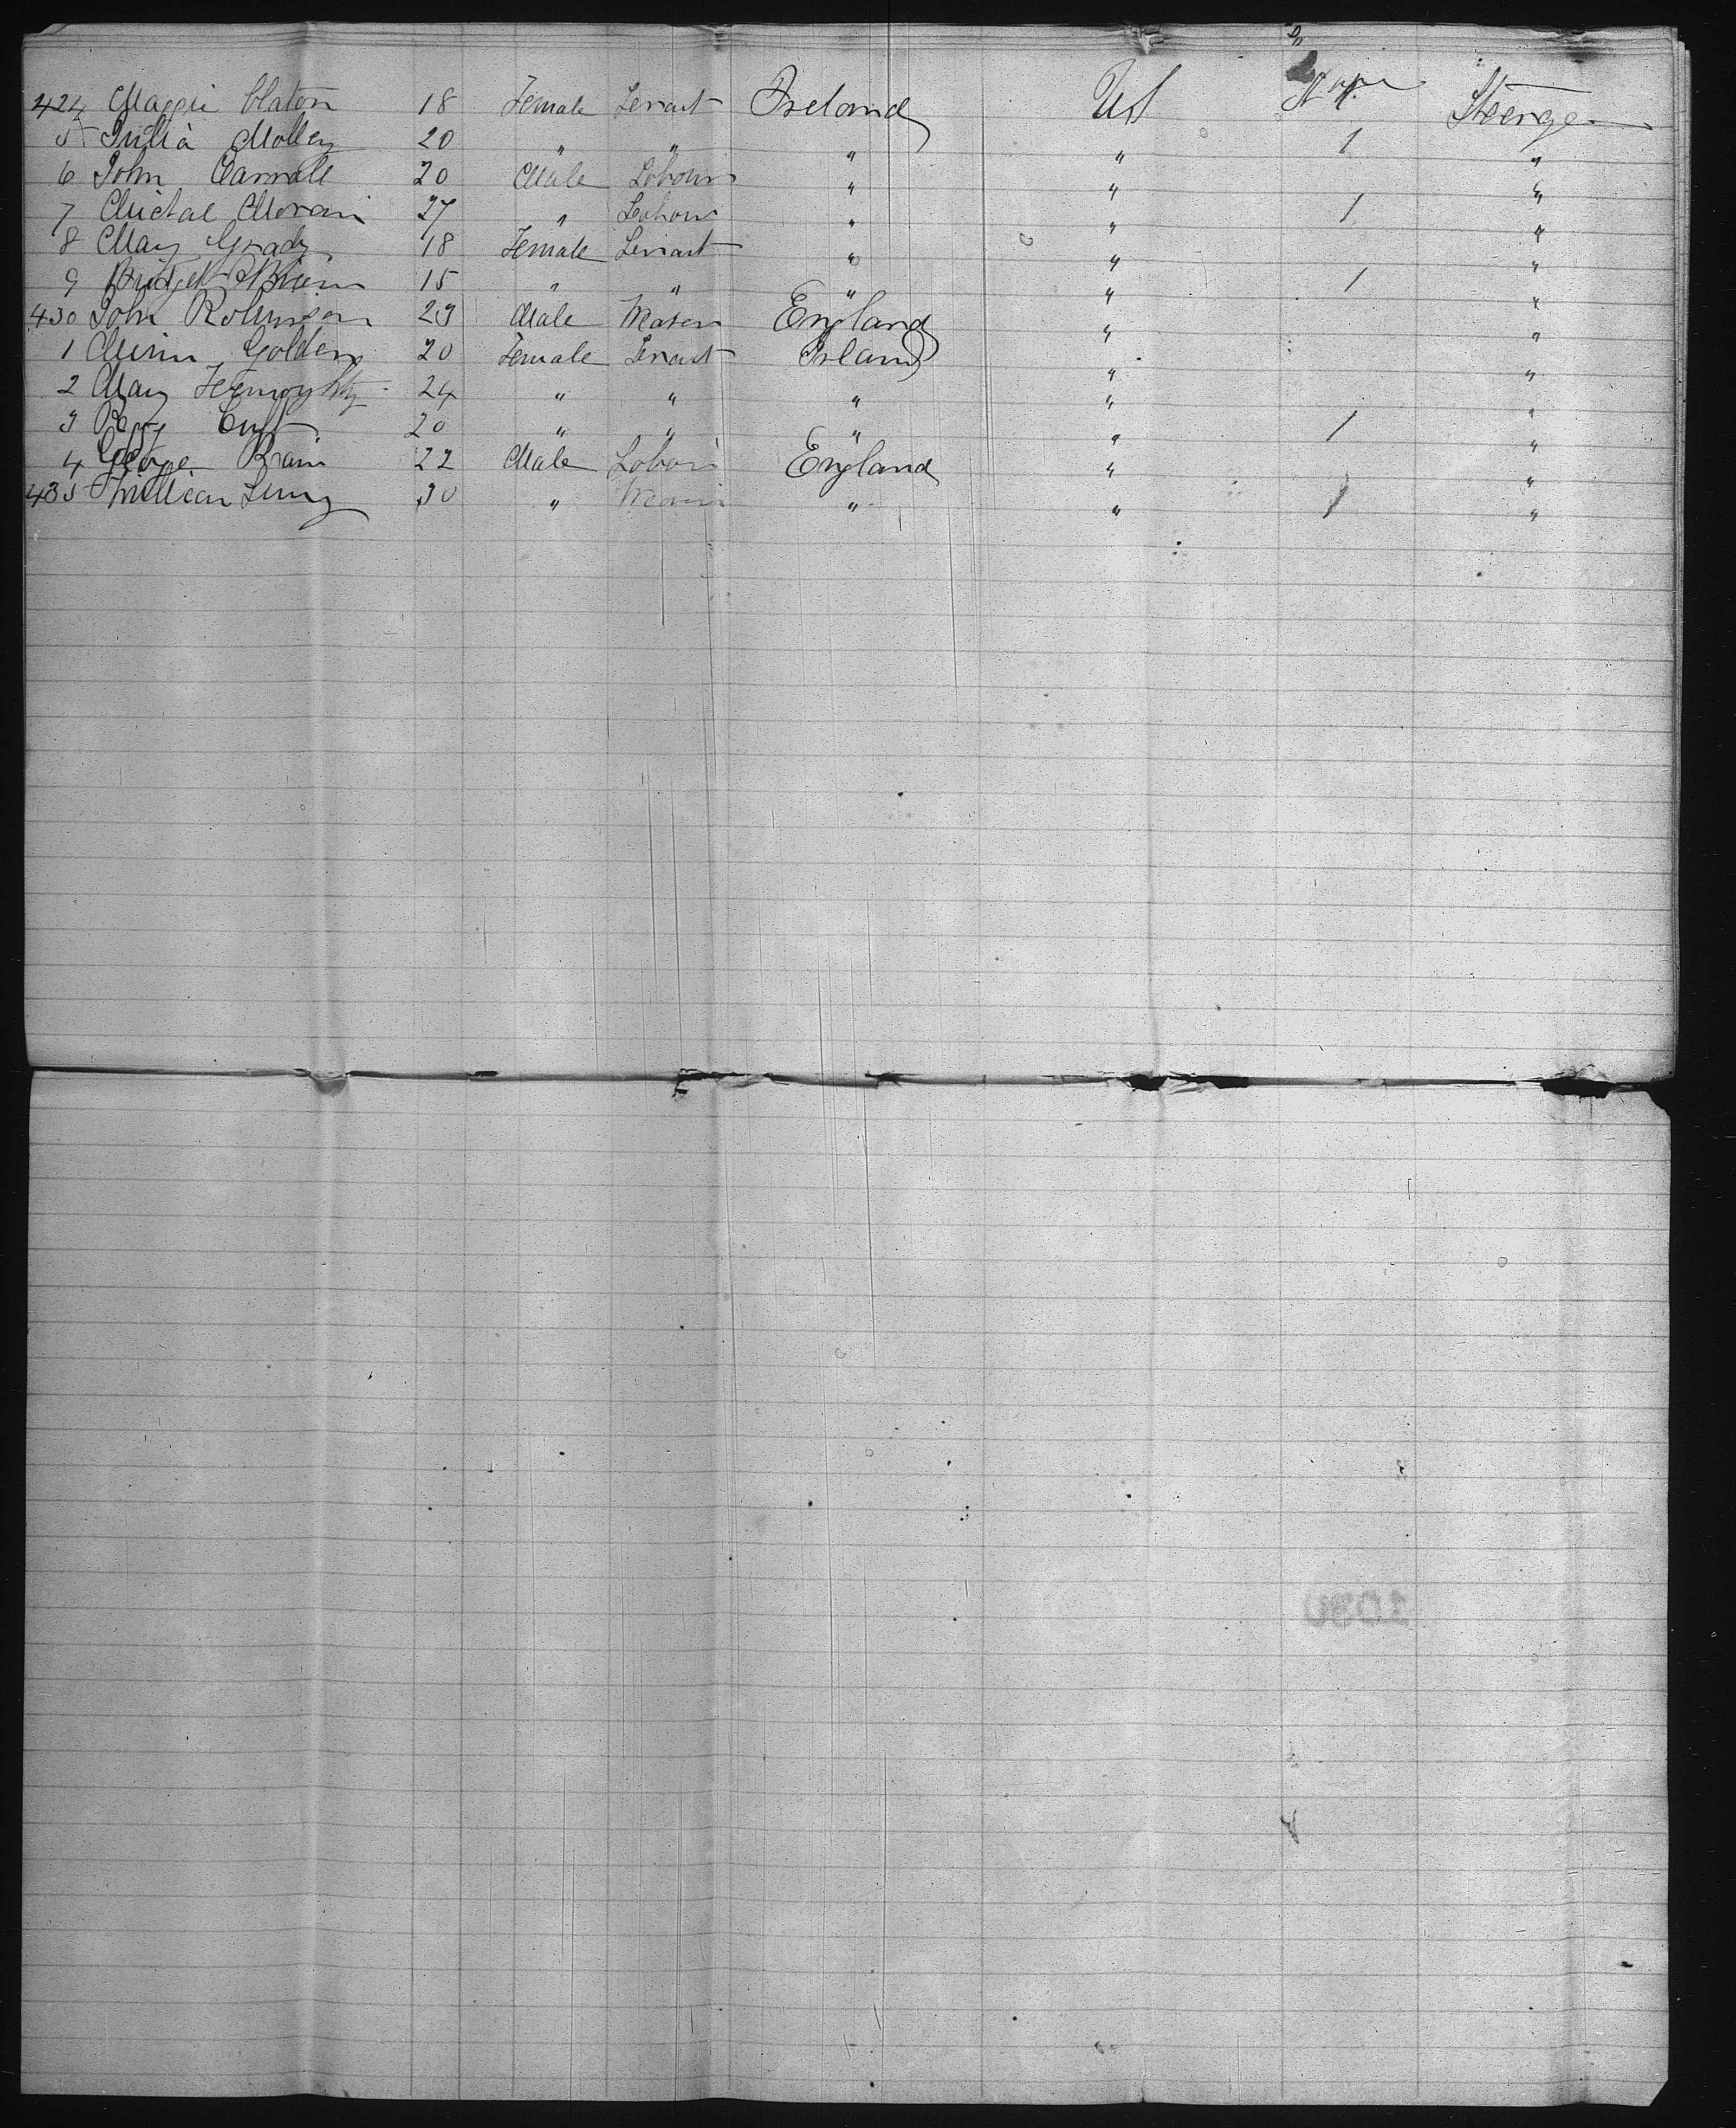 424 Maggie Claton 18 Female Servant Ireland US Steerge
5 Julia Molley 20 " " " " 1 "
6 John 20 Male Labour " " "
7 Michal Moran 27 " Labour " " 1 "
8 Mary Grady 18 Female Servant " " "
9 Bridget 15 " " " " 1 "
430 John Robinson 29 Male Mason England " "
1 Golden 20 Female Servant Irland " "
2 Mary 24 " " " " "
3 20 " " " " 1 "
4 George 22 Male Labour England " "
435 William 30 " " " 1 "